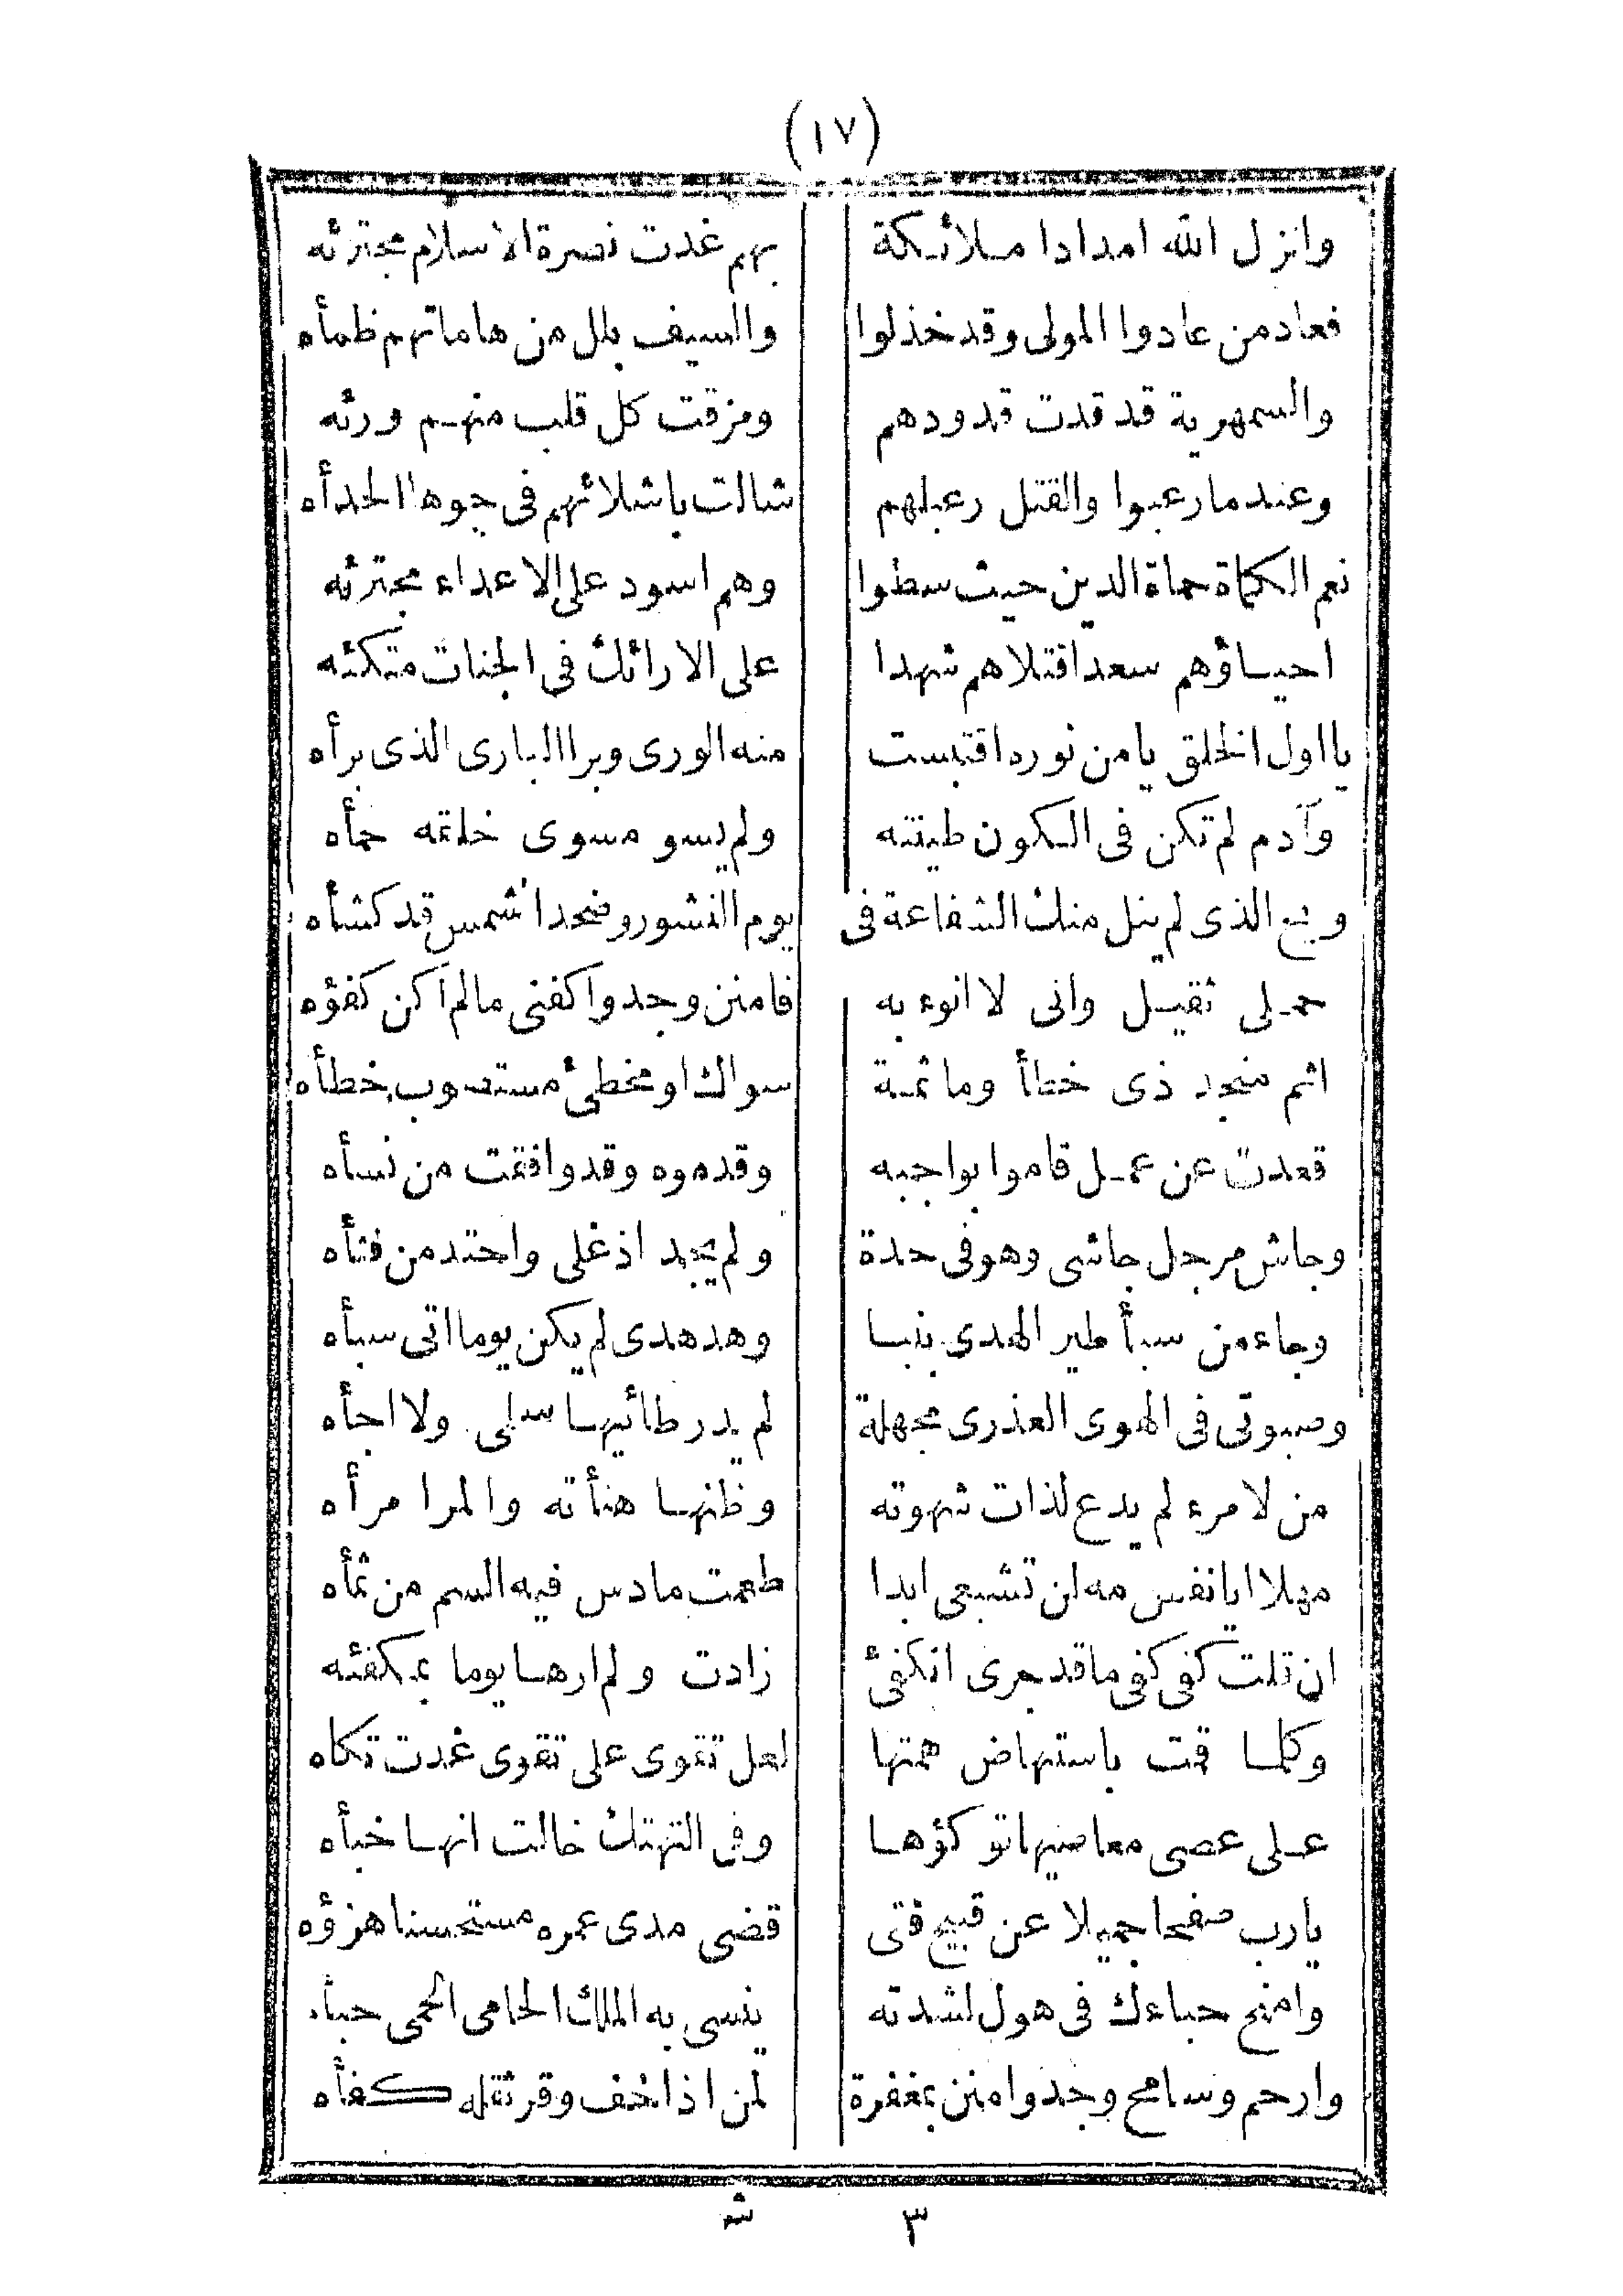 (١٧)
وانزل الله امدادا ملائكة بهم غدت نصرة الاسلام مجترئه
فعاد من عادوا المولى وقد خذلوا والسيف بلل من هاماتهم ظمأه
والسمهرية قد قدت قدودهم ومزقت كل قلب منهم ورئه
وعندما رعبوا والقتل رعبلهم شالت باشلائهم فى جوها الحدأه
نعم الكماة حماة الدين حيث سطوا وهم اسود على الاعداء مجترئه
احياؤهم سعدا قتلاهم شهدا على الارائك فى الجنات متكئه
يا اول الخلق يا من نوره اقتبست منه الورى وبرا البارى الذى برأه
وآدم لم تكن فى الكون طينته ولم يسو مسوى خلقه حمأه
ويح الذى لم ينل منك الشفاعة فى يوم النشور وضحدا شمس قد كشأه
حملى ثقيل وانى لا انوء به فامنن وجد واكفنى مالم اكن كفؤه
اثم منجد ذى خطأ وما ثمة سواك او مخطئ مستصوب خطأه
قعدت عن عمل قاموا بواجبه وقدموه وقد وافقت من نسأه
وجاش مرجل جاشى وهو فى حدة ولم يجد اذ غلى واحتد من فثأه
وجاء من سبأ طير الهدى بنبا وهدهدى لم يكن يوما اتى سبأه
وصبوتى فى الهوى العذرى مجهلة لم يدر طائيها سلمى ولا اجأه
من لامرء لم يدع لذات شهوته وظنها هنأته والمرا مرأه
مهلا ايا نفس مه لن تشبعى ابدا طعمت مادس فيه السم من ثمأه
ان تلت كفى كفى ماقد جرى انكفئ زادت ولم ارها يوما بمكفئه
وكلما قمت باستنهاض همتها لعل تقوى على تقوى غدت تكاه
على عصى معاصيها توكؤها وفى التهتك خالت انها خبأه
يارب صفحا جميلا عن قبيح فتى قضى مدى عمره مستحسنا هزؤه
وامنح حباءك فى هول لشدته ينسى به الملك الحامى الحمى حبأه
وارحم وسامح وجد وامنن بمغفرة لمن اذا خف وقر ثقله كفأه
٣ ث